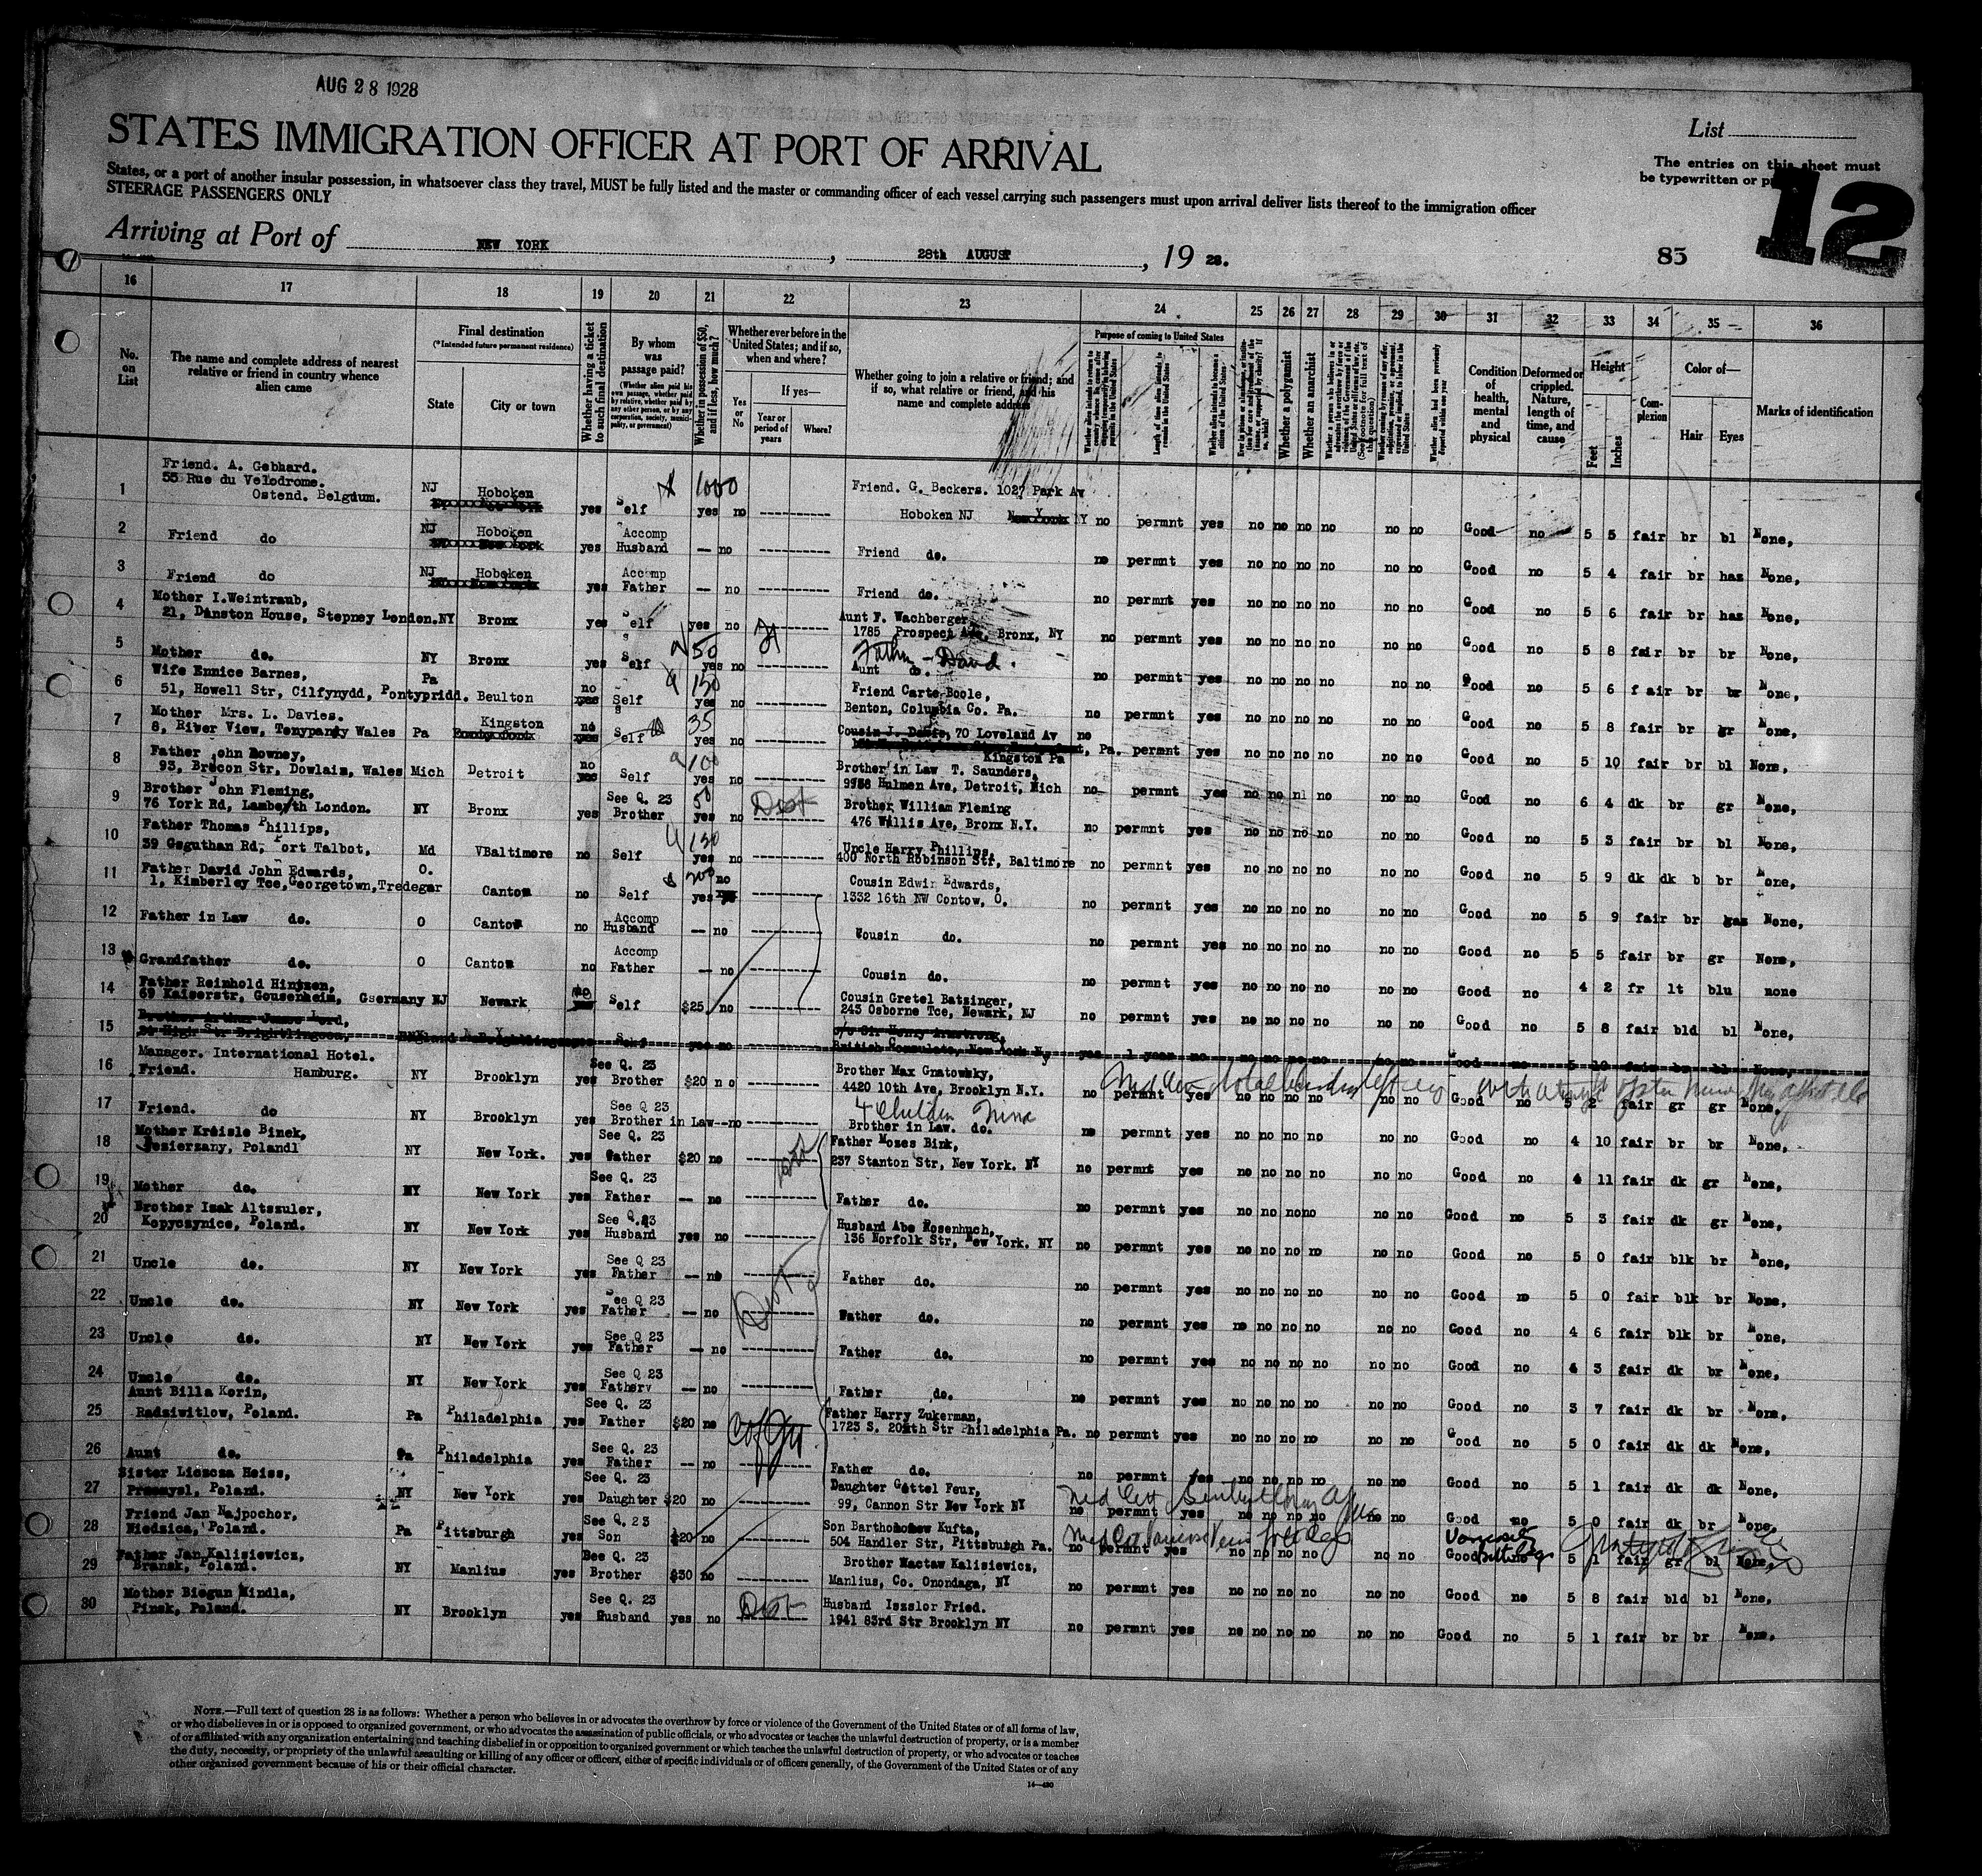 AUG 28 1928
STATES IMMIGRATION OFFICER AT PORT OF ARRIVAL
List
The entries on this sheet must
be typewritten or
12
States, or a port of another insular possession, in whatsoever class they travel, MUST be fully listed and the master or commanding officer of each vessel carrying such passengers must upon arrival deliver lists thereof to the immigration officer
STEERAGE PASSENGERS ONLY
Arriving at Port of NEW YORK, 28th AUGUST, 19 28.
83
16 17 18 19 20 21 22 23 24 25 26 27 28 29 30 31 32 33 34 35 36
No. on List
The name and complete address of nearest relative or friend in country whence alien came
Final destination
(*Intended future permanent residence)
State
City or town
Whether having a ticket to such final destination
By whom was passage paid?
(Whether alien paid his own passage, whether paid by relative, whether paid by any other person, or by any corporation, society, municipality, or government)
Whether in possession of $50, and if less, how much?
Whether ever before in the United States; and if so, when and where?
Yes or No
If yes—
Year or period of years
Where?
Whether going to join a relative or friend; and if so, what relative or friend, and his name and complete address
Purpose of coming to United States
Length of time alien intends to remain in the United States
Whether alien intends to become a citizen of the United States
Whether a polygamist
Whether an anarchist
Condition of health, mental and physical
Deformed or crippled. Nature, length of time, and cause
Height
Feet
Inches
Complexion
Color of—
Hair
Eyes
Marks of identification
1 Friend. A. Gebhard.
55 Rue du Velodrome.
Ostend. Belgium. NJ Hoboken yes Self $ 1000 yes no Friend. G. Beckers. 1027 Park Av
Hoboken NJ no permnt yes no no no no no no Good no 5 5 fair br bl None,
2 Friend do NJ Hoboken yes Accomp Husband — no Friend do. no permnt yes no no no no no no Good no 5 4 fair br haz None,
3 Friend do NJ Hoboken yes Accomp Father — no Friend do. no permnt yes no no no no no no Good no 5 6 fair br haz None,
4 Mother I.Weintraub,
21, Dunston House, Stepney London. NY Bronx yes Self yes no Aunt F. Wachberger
1785 Prospect Ave, Bronx, NY no permnt yes no no no no no no Good no 5 8 fair br br None,
5 Mother do. NY Bronx yes Self 50 yes no Father - David.
Aunt do. no permnt yes no no no no no no Good no 5 6 fair br br None,
6 Wife Ennice Barnes,
51, Howell Str, Cilfynydd, Pontypridd. Pa Beulton no Self 150 yes no Friend Carte Boole,
Benton, Columbia Co. Pa. no permnt yes no no no no no no Good no 5 8 fair br gr None,
7 Mother Mrs. L. Davies.
8, River View, Tonypandy Wales Pa Kingston no Self 35 yes no Cousin J. 70 Loveland Av
Kingston Pa no permnt yes no no no no no no Good no 5 10 fair br bl None,
8 Father John Downey,
93, Brecon Str, Dowlais, Wales Mich Detroit no Self 100 yes no Brother in Law T. Saunders,
9958 Hulmen Ave, Detroit, Mich no permnt yes no no nl no no no Good no 6 4 dk br gr None,
9 Brother John Fleming,
76 York Rd, Lambeth London. NY Bronx yes See Q. 23 Brother 50 yes no Dist Brother William Fleming
476 Willis Ave, Bronx N.Y. no permnt yes no no no no no no Good no 5 3 fair br bl None,
10 Father Thomas Phillips,
39 Geguthan Rd, Port Talbot, Md VBaltimore no Self 150 yes no Uncle Harry Phillips,
400 North Robinson Str, Baltimore no permnt yes no no no no no no Good no 5 9 dk dk b br None,
11 Father David John Edwards,
1, Kimberley Tce, Georgetown, Tredegar O. Canton no Self $ 200 yes no Cousin Edwin Edwards,
1332 16th NW Contow, O. no permnt yes no no no no no no Good no 5 9 fair br None,
12 Father in Law do. O Canton no Accomp Husband — no Cousin do. no permnt yes no no no no no no Good no 5 5 fair br gr None,
13 Grandfather do. O Canton no Accomp Father — no Cousin do. no permnt yes no no no no no no Good no 4 2 fr lt blu none
14 Father Reinhold Hintzen,
69 Kaiserstr, Gousenheim, Gsermany NJ Newark no Self $25 no Cousin Gretel Batzinger,
243 Osborne Tce, Newark, NJ no permnt yes no no no no no no Good no 5 8 fair bld bl None,
15 Brother Arthur James Lord,
24 High Str Brightlingsea, England yes no c/o Sir Henry Armstrong,
British Consulate, New York Ny yes 1 year no no no no no no no Good no 5 10 fair br bl None,
16 Manager. International Hotel.
Friend. Hamburg. NY Brooklyn yes See Q. 23 Brother $20 no Brother Max Gnatowsky,
4420 10th Ave, Brooklyn N.Y. no permnt yes no no no no no no Good no 5 2 fair gr gr None,
17 Friend. do NY Brooklyn yes See Q 23 Brother in Law--no 4 Children Nina
Brother in Law. do. no permnt yes no no no no no no Good no 4 10 fair br br None,
18 Mother Kreisle Binek,
Jesierzany, Polandl NY New York. yes See Q. 23 Father $20 no Father Mozes Bink,
237 Stanton Str, New York. NY no permnt yes no no no no no no Good no 4 11 fair dk gr None,
19 Mother do. NY New York yes See Q. 23 Father — no Father do. no permnt yes no no no no no no Good no 5 3 fair dk gr None,
20 Brother Izak Altszuler,
Kopyczynice, Poland. NY New York yes See Q.23 Husband yes no Husband Abe Rosenhuch,
136 Norfolk Str, New York. NY no permnt yes no no no no no no Good no 5 0 fair blk br None,
21 Uncle do. NY New York yes See Q 23 Father — no Father do. no permnt yes no no no no no no Good no 5 0 fair blk br None,
22 Uncle do. NY New York yes See Q 23 Father — no Dist Wather do. no permnt yes no no no no no no Good no 4 6 fair blk br None,
23 Uncle do. NY New York yes See Q 23 Father — no Father do. no permnt yes no no no no no no Good no 4 3 gair dk br None,
24 Uncle do. NY New York yes See Q 23 Fatherv — no Father do. no permnt yes no no no no no no Good no 3 7 fair dk br None,
25 Aunt Billa Korin,
Radziwitlow, Poland. Pa Philadelphia yes See Q. 23 Father $20 no Father Harry Zukerman,
1723 S. 20th Str Philadelphia Pa. no permnt yes no no no no no no Good no 5 0 fair dk dk None,
26 Aunt do. Pa Philadelphia yes See Q. 23 Father — no Father do. no permnt yes no no no no no no Good no 5 1 fair dk dk None,
27 Sister Lieszsa Heiss,
Przemysl, Poland. NY New York yes See Q. 23 Daughter $20 no Daughter Gettel Feur,
99, Cannon Str New York NY no permnt yes no no no no no no Good no 5 0 fair dk br None,
28 Friend Jan Najpochor,
Niedzica, Poland. Pa Pittsburgh yes See Q. 23 Son $20 no Son Bartholomew Kufta,
504 Handler Str, Pittsburgh Pa. no permnt yes no no no no no no Good no 5 1 fair gr bl None,
29 Father Jan Kalisiewicz,
Bransk, Poland. NY Manlius yes See Q. 23 Brother $30 no Brother Wactaw Kalisiewicz,
Manlius, Co. Onondaga, NY no permnt yes no no no no no no Good no 5 8 fair bld bl None,
30 Mother Biegun Mindla,
Pinsk, Poland. NY Brooklyn yes See Q. 23 Husband yes no Dist Husband Iszslor Fried.
1941 83rd Str Brooklyn NY no permnt yes no no no no no no Good no 5 1 fair br br None,
NOTE.—Full text of question 28 is as follows: Whether a person who believes in or advocates the overthrow by force or violence of the Government of the United States or of all forms of law,
or who disbelieves in or is opposed to organized government, or who advocates the assassination of public officials, or who advocates or teaches the unlawful destruction of property, or is a member
of or affiliated with any organization entertaining and teaching disbelief in or opposition to organized government or which teaches the unlawful destruction of property, or who advocates or teaches
the duty, necessity, or propriety of the unlawful assaulting or killing of any officer or officers, either of specific individuals or of officers generally, of the Government of the United States or of any
other organized government because of his or their official character.
14—430